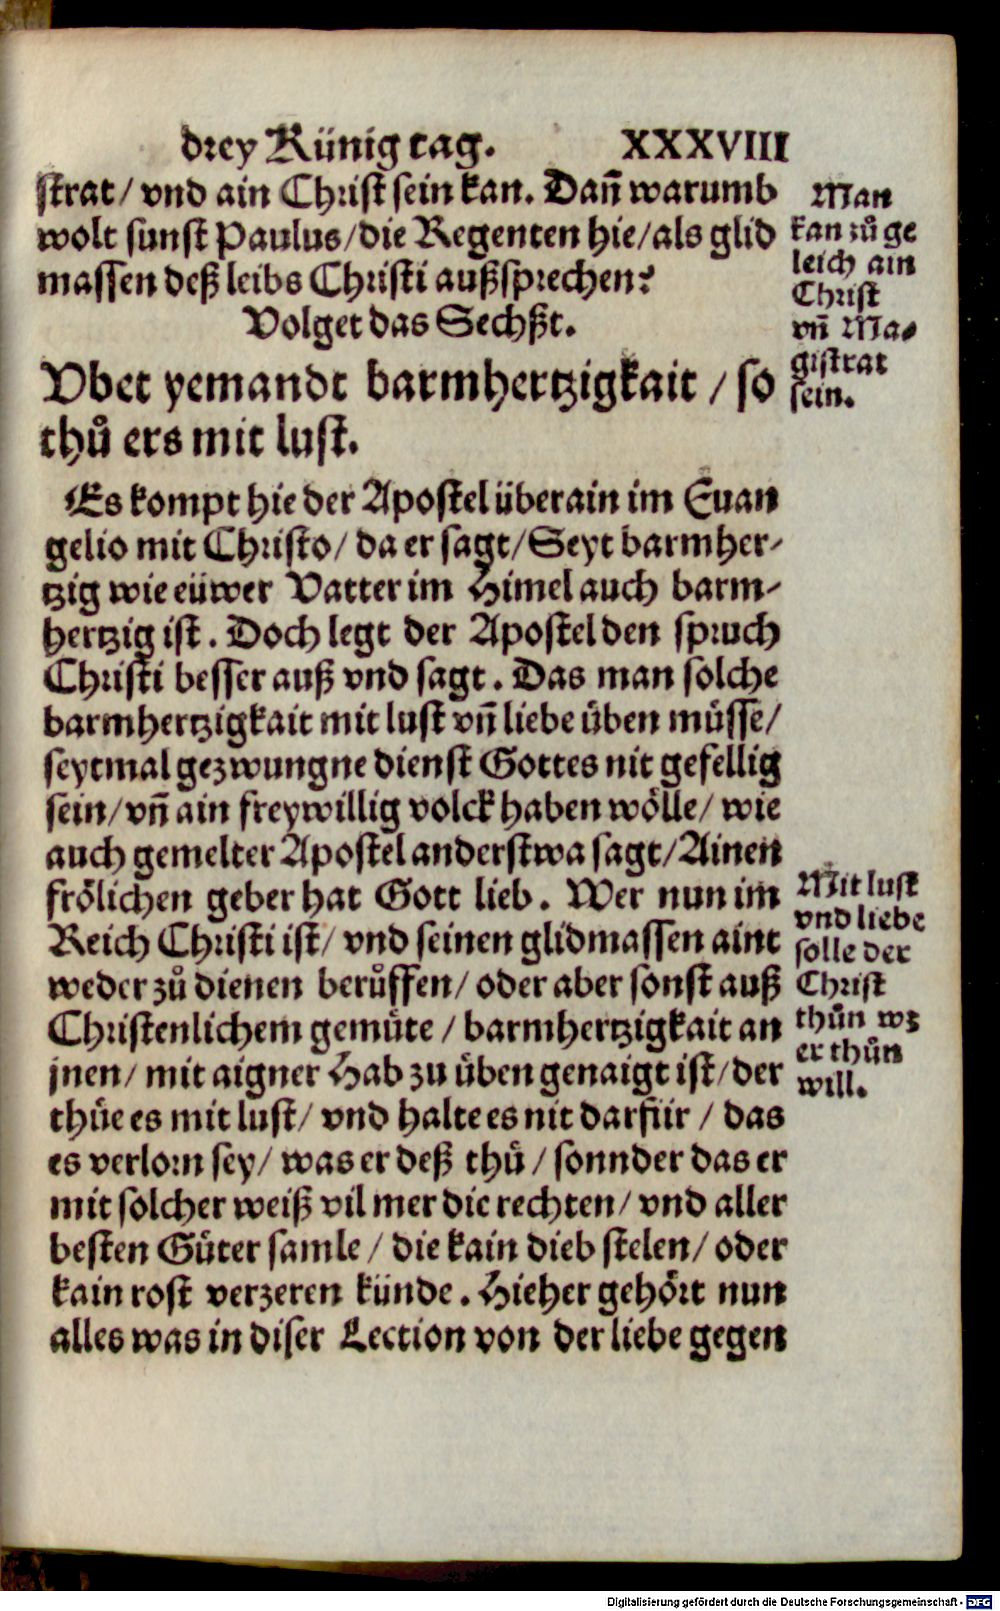 drey Künig tag. XXXVIII
strat/ vnd ain Christ sein kan. Dañ warumb
wolt sunst Paulus/die Regenten hie/als glid
massen deß leibs Christi außsprechen?
Volget das Sechßt.
Vbet yemandt barmhertzigkait / so
thů ers mit lust.
Es kompt hie der Apostel überain im Euan
gelio mit Christo/ da er sagt/Seyt barmher-
tzig wie eüwer Vatter im Himel auch barm-
hertzig ist. Doch legt der Apostel den spruch
Christi besser auß vnd sagt. Das man solche
barmhertzigkait mit lust vñ liebe üben müsse/
seytmal gezwungne dienst Gottes nit gefellig
sein/vñ ain freywillig volck haben wölle/ wie
auch gemelter Apostel anderstwa sagt/Ainen
frölichen geber hat Gott lieb. Wer nun im
Reich Christi ist/ vnd seinen glidmassen aint
weder zů dienen berůffen/ oder aber sonst auß
Christenlichem gemüte / barmhertzigkait an
jnen/ mit aigner Hab zu üben genaigt ist/der
thüe es mit lust/ vnd halte es nit darfür / das
es verlorn sey/ was er deß thů / sonnder das er
mit solcher weiß vil mer die rechten/ vnd aller
besten Güter samle / die kain dieb stelen/ oder
kain rost verzeren künde. Hieher gehört nun
alles was in diser Lection von der liebe gegen
Man
kan zů ge
leich ain
Christ
vñ Ma-
gistrat
sein.
Mit lust
vnd liebe
solle der
Christ
thůn wz
er thůn
will.
Digitalisierung gefördert durch die Deutsche Forschungsgemeinschaft - DFG